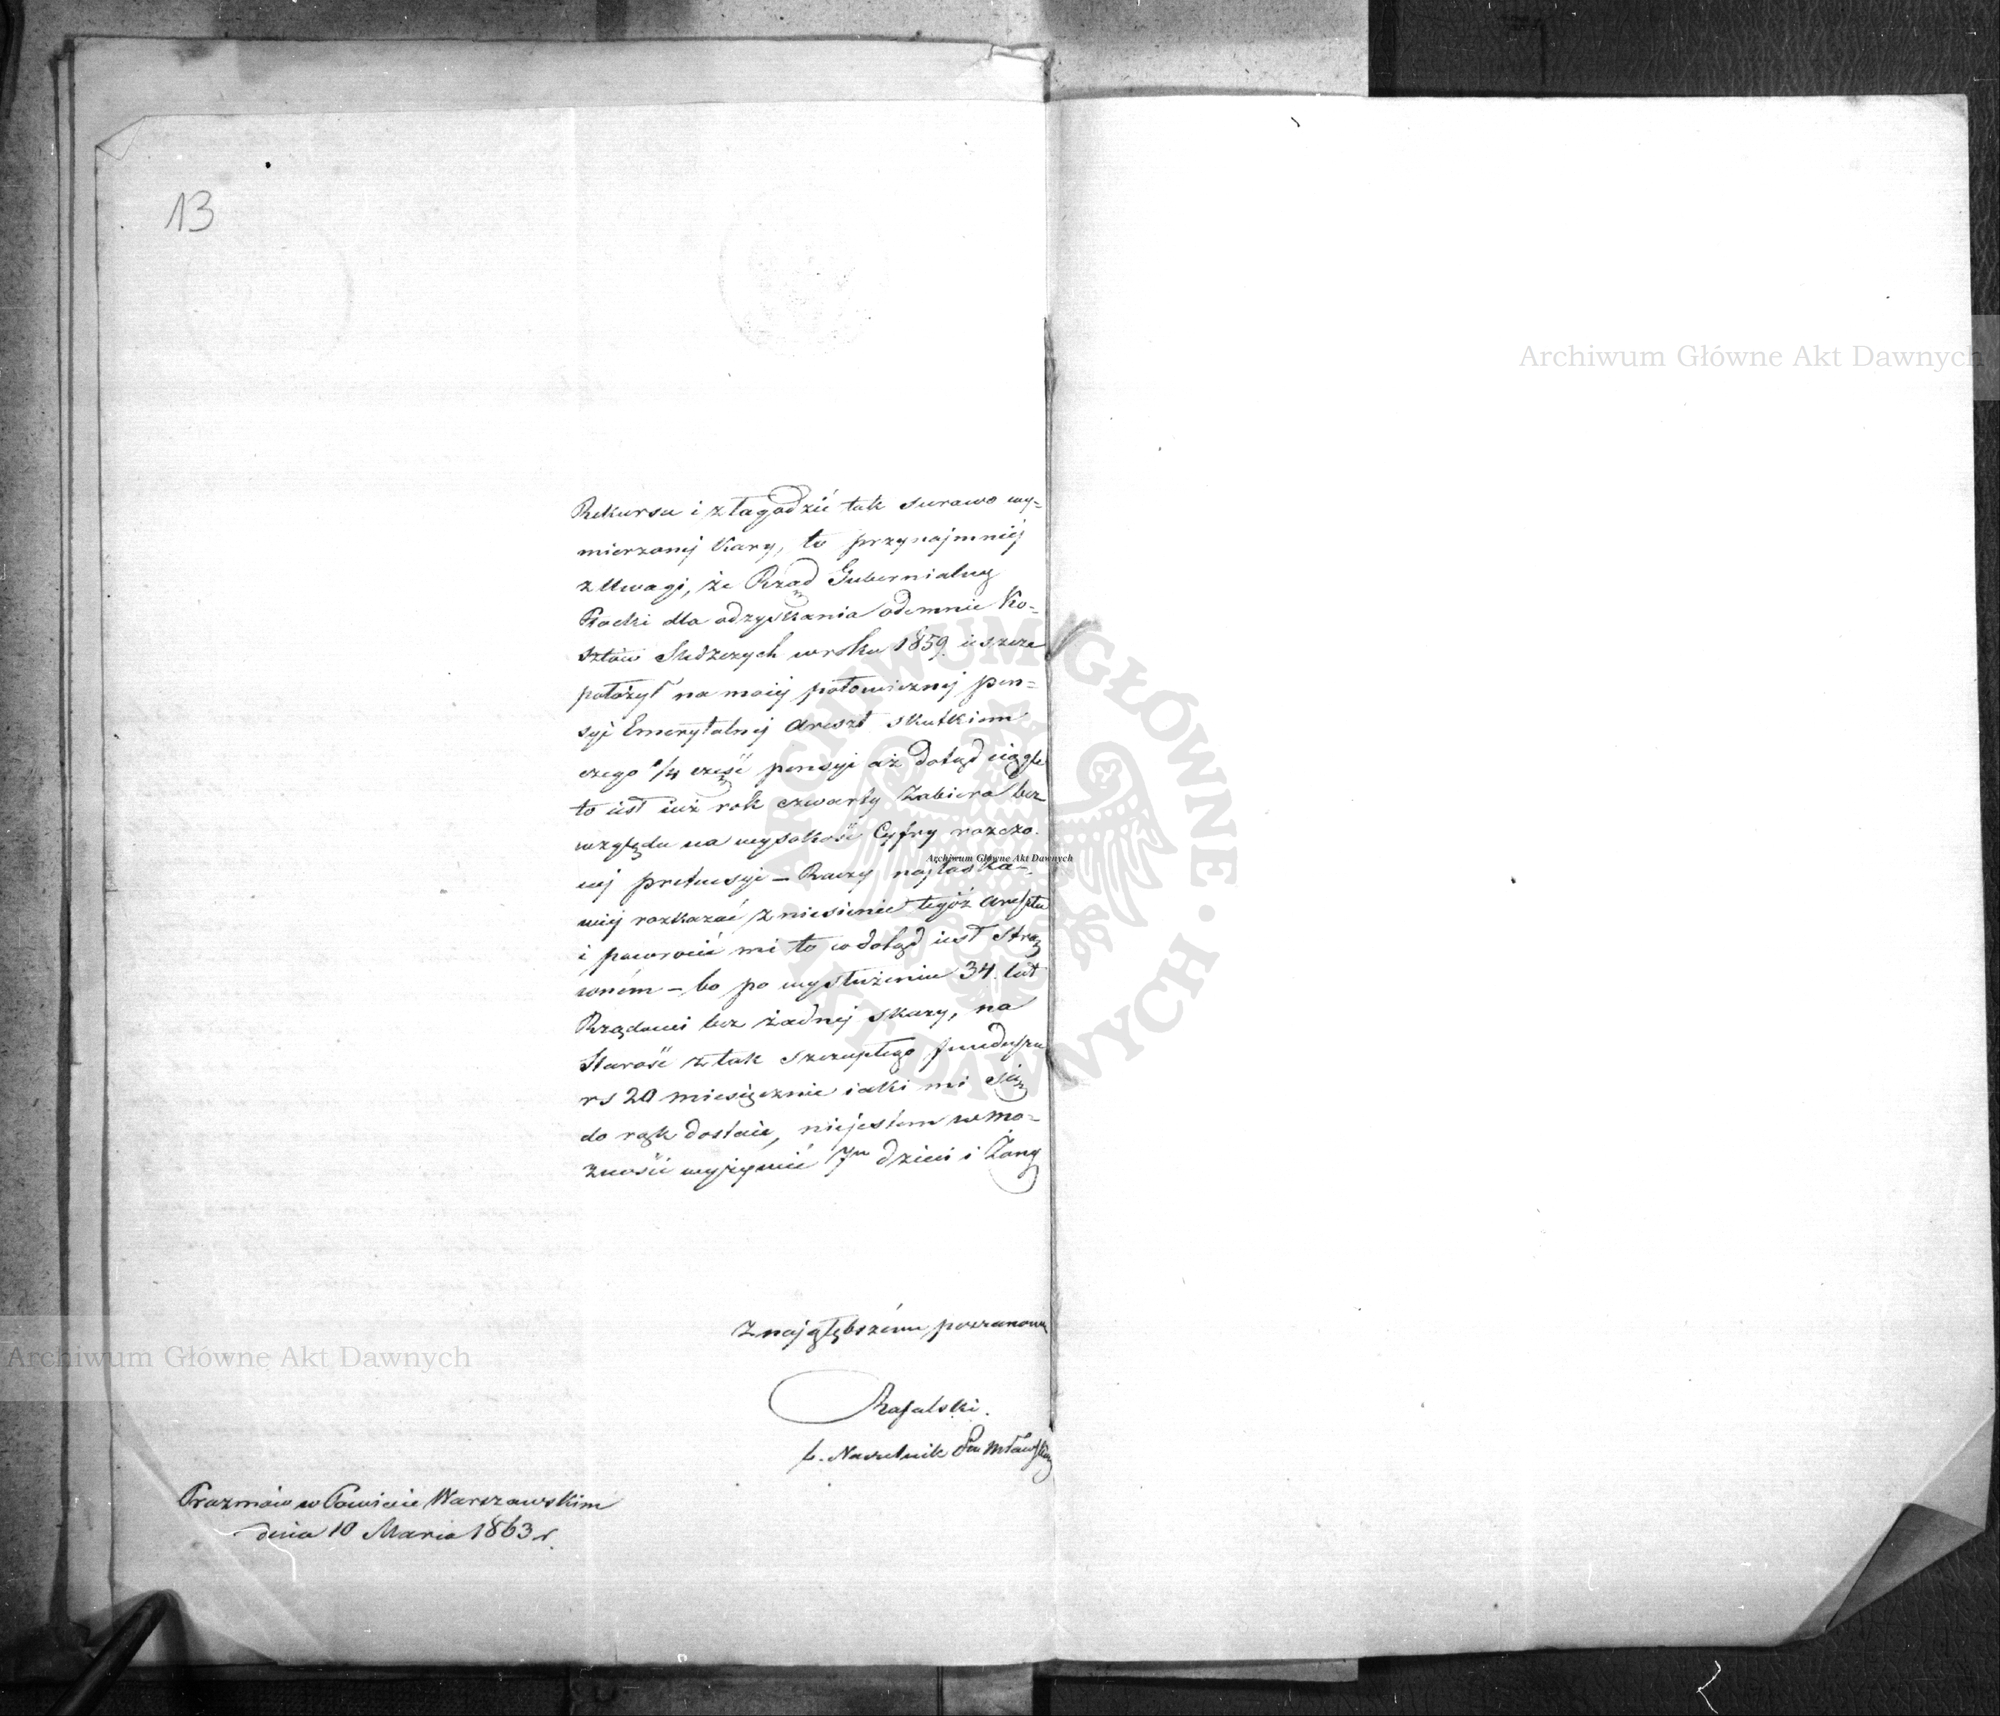 13
Rekursu i złagodzić tak surowo wy=
mierzonej Kary, to przynajmniej
z Uwagi, że Rząd Gubernialny
Płocki dla odzyskania odemnie Ko-
sztów Śledczych w roku 1859 ieszcze
położył na moiej połowicznej pen=
syi Emerytalnej Areszt skutkiem
czego 1/4 część pensyi aż dotąd ciągle
to iest iuż rok czwarty Zabiera bez
względu na wysokość Cyfry rozczo-
nej pretensyi – Raczy najłaska-
wiej rozkazać zniesienie tegóż Aresztu
i powrócić mi to co dotąd iest Strą
coném – bo po wysłużeniu 34. lat
Rządowi bez żadnej skazy, na
Starość z tak szczupłego funduszu
rs 20 miesięcznie iaki mi się
do rąk dostaie, niejestem w mo-
żności wyżywić 7m dzieci i Żony
Z najgłębszém poszanowa
Rafalski.
b. Naczelnik Ptu Mławskiego
Prazmów w Powiecie Warszawskim
dnia 10 Marca 1863 r.
Archiwum Główne Akt Dawnych
Archiwum Główne Akt Dawnych
Archiwum Główne Akt Dawnych
ARCHIWUM GŁÓWNE • AKT DAWNYCH •